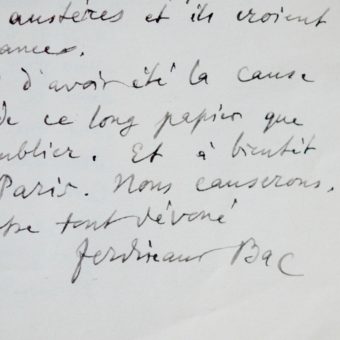 austères et ils croient
ances.
d'avoir été la cause
de ce long papier que
ublier. Et à bientôt
Paris. Nous causerons.
tre tout dévoué
Ferdinand Bac